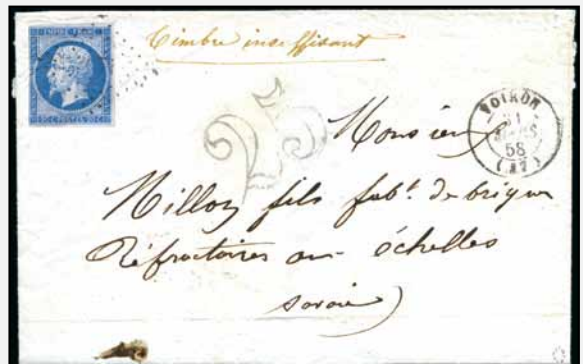 EMPIRE FRANC
20 C POSTES 20 C
Timbre insuffisant
25
VOIRON
31
MARS
58
(37)
Monsieur
Milloz fils fabt. de briques
Réfractaires aux échelles
savoie